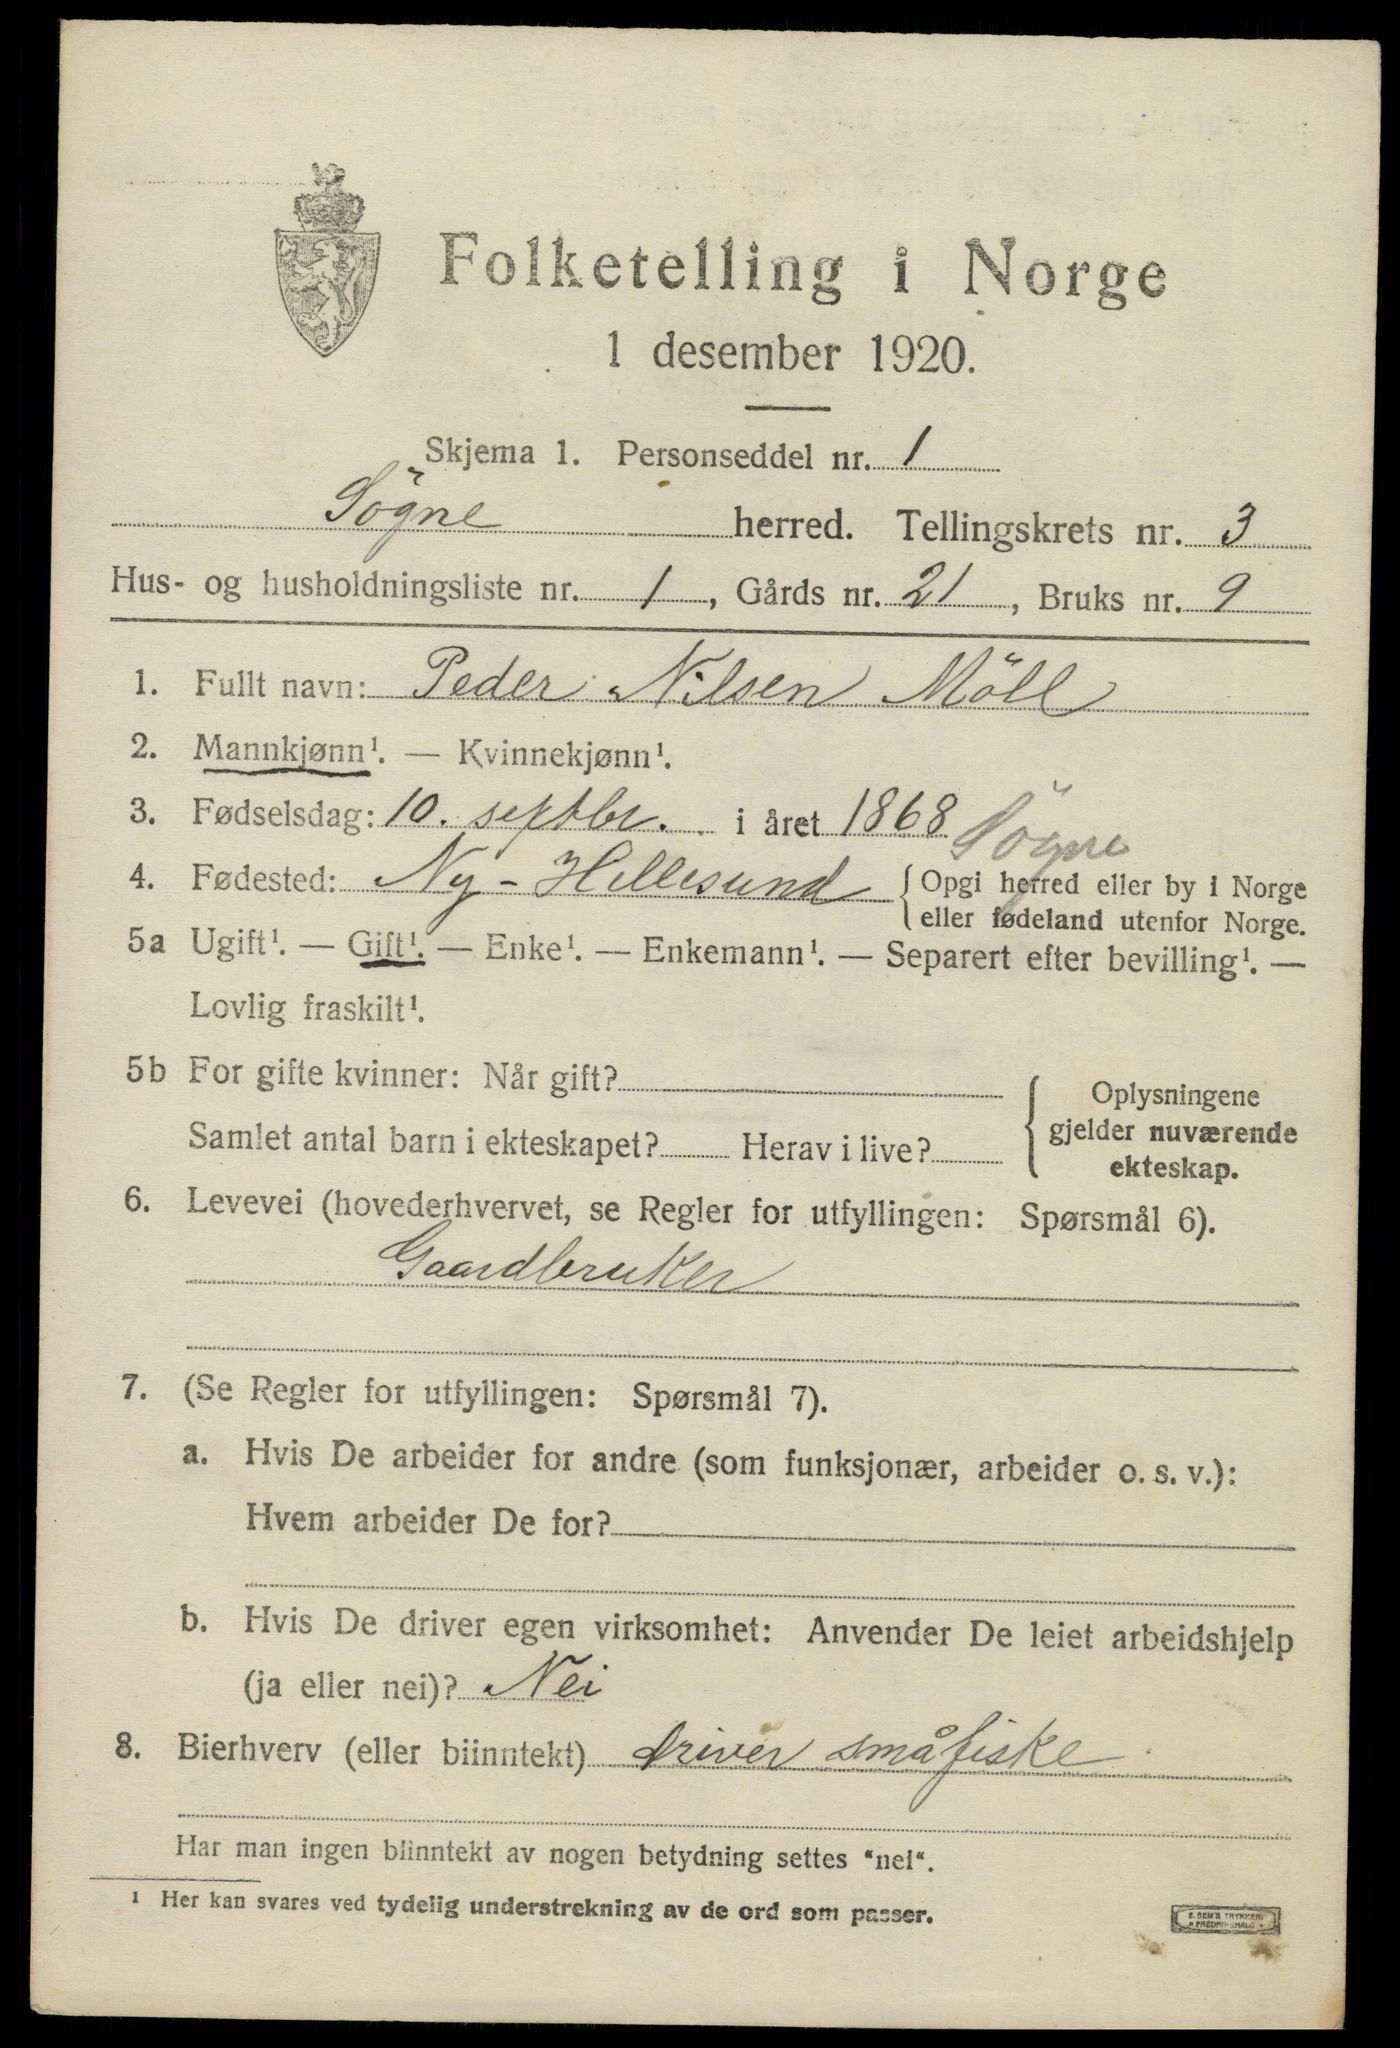 Folketelling i Norge
1 desember 1920.
Skjema 1. Personseddel nr. 1
Sögne herred. Tellingskrets nr. 3
Hus- og husholdningsliste nr. 1, Gårds nr. 21, Bruks nr. 9
1. Fullt navn: Peder Nilsen Möll
2. Mannkjønn¹. — Kvinnekjønn¹.
3. Fødselsdag: 10. septbr. i året 1868
Sögne
4. Fødested: Ny-Hellesund { Opgi herred eller by i Norge
eller fødeland utenfor Norge.
5a Ugift¹. — Gift¹. — Enke¹. — Enkemann¹. — Separert efter bevilling¹. —
Lovlig fraskilt¹.
5b For gifte kvinner: Når gift?
Samlet antal barn i ekteskapet? Herav i live?
Oplysningene
gjelder nuværende
ekteskap.
6. Levevei (hovederhvervet, se Regler for utfyllingen: Spørsmål 6).
Gaardbruker
7. (Se Regler for utfyllingen: Spørsmål 7).
a. Hvis De arbeider for andre (som funksjonær, arbeider o. s. v.):
Hvem arbeider De for?
b. Hvis De driver egen virksomhet: Anvender De leiet arbeidshjelp
(ja eller nei)? Nei
8. Bierhverv (eller biinntekt) driver småfiske
Har man ingen biinntekt av nogen betydning settes "nei".
¹ Her kan svares ved tydelig understrekning av de ord som passer.
E. SEM'S TRYKKERI
FREDRIKSHALD